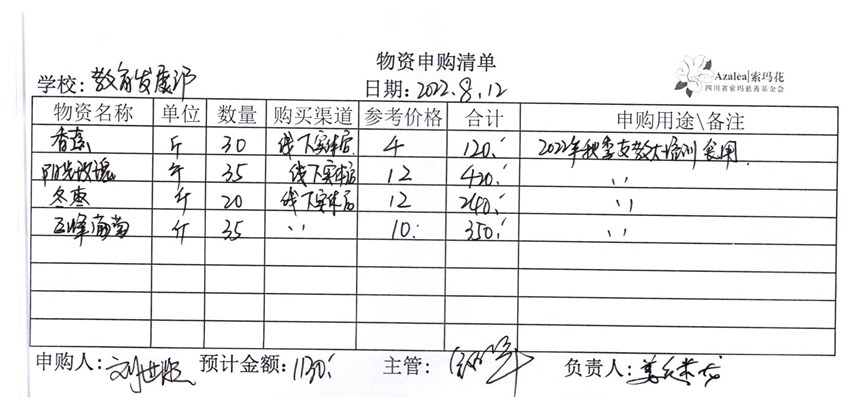 物资申购清单
Azalea|索玛花
四川省索玛慈善基金会
学校：教育发展部 日期：2022.8.12
物资名称 单位 数量 购买渠道 参考价格 合计 申购用途\备注
香蕉 斤 30 线下实体店 4 120 2022年秋季支教大培训食用
阳光玫瑰 斤 35 线下实体店 12 420 〃
冬枣 斤 20 线下实体店 12 240 〃
斤 35 〃 10 350 〃
申购人： 预计金额：1130 主管： 负责人：